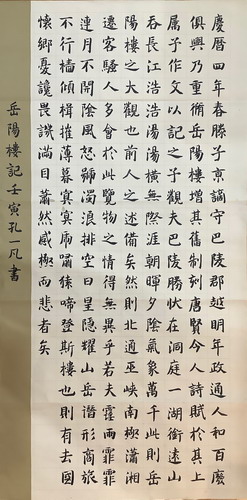 慶曆四年春滕子京謫守巴陵郡越明年政通人和百廢
俱興乃重脩岳陽樓增其舊制刻唐賢今人詩賦於其上
属予作文以記之予觀夫巴陵勝狀在洞庭一湖銜遠山
吞長江浩浩湯湯橫無際涯朝暉夕陰氣象萬千此則岳
陽樓之大觀也前人之述備矣然則北通巫峽南極瀟湘
遷客騷人多會於此覽物之情得無異乎若夫霪雨霏霏
連月不開陰風怒號濁浪排空日星隱耀山岳潛形商旅
不行檣傾楫摧薄暮冥冥虎嘯猿啼登斯樓也則有去國
懷鄉憂讒畏譏滿目蕭然感極而悲者矣
岳陽樓記壬寅孔一凡書